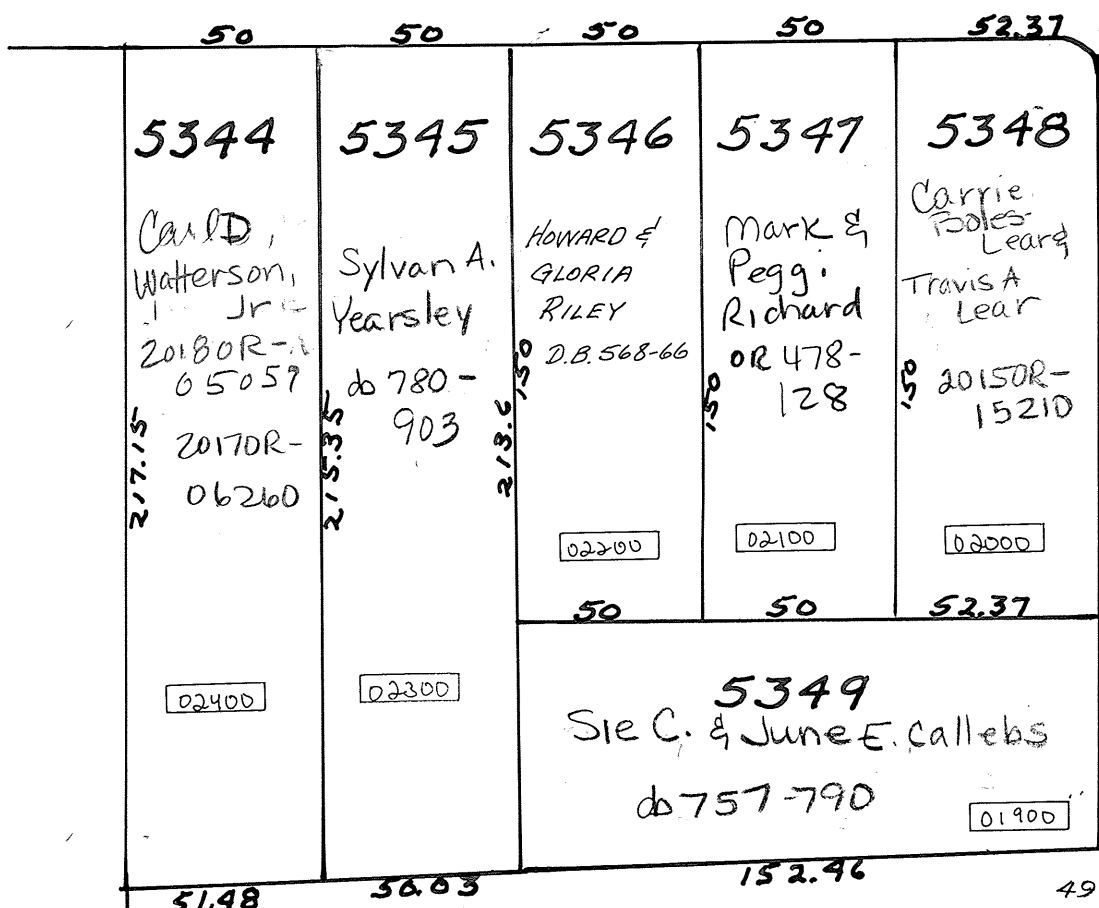 50
50
50
50
52.37
5344
Carl D.
Watterson,
Jr
2018OR-
05059
2017OR-
06260
217.15
02400
51.48
5345
Sylvan A.
Yearsley
db 780-
903
215.35
02300
50.03
5346
HOWARD &
GLORIA
RILEY
D.B. 568-66
150
213.6
02200
50
5347
Mark &
Peggi
Richard
OR 478-
128
150
02100
50
5348
Carrie
Boles-
Lear &
Travis A
Lear
2015OR-
15210
150
02000
52.37
5349
Sie C. & June E. Callebs
db 757-790
01900
152.46
49